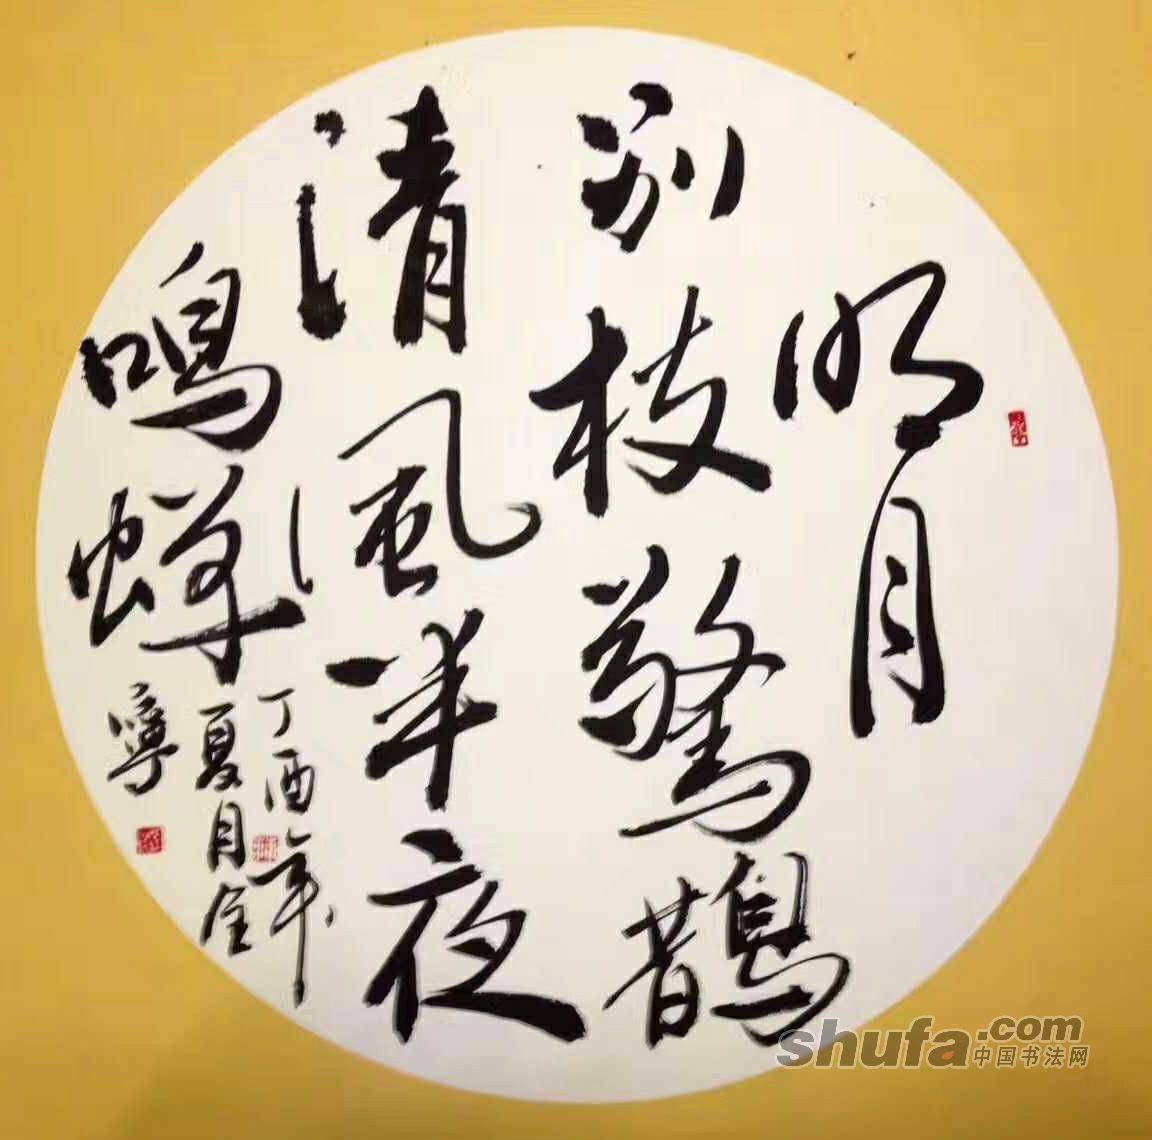 明月
别枝驚鵲
清風半夜
鳴蟬
丁酉年
夏月金
寧
shufa.com
中国书法网